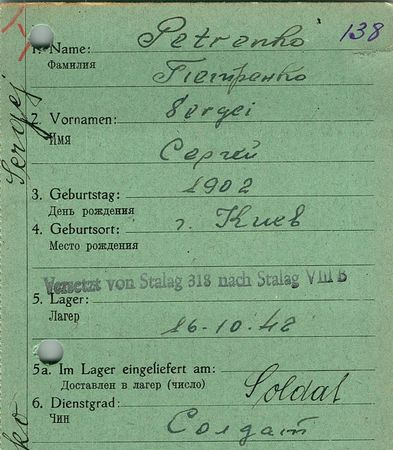 138
1. Name: Petrenko
Фамилия
Петренко
2. Vornamen: Sergei
Имя
Сергей
3. Geburtstag: 1902
День рождения
4. Geburtsort: г. Киев
Место рождения
Versetzt von Stalag 318 nach Stalag VIII B
5. Lager:
Лагер
16-10-42
5a. Im Lager eingeliefert am:
Доставлен в лагер (число)
Soldat
6. Dienstgrad:
Чин
Солдат
Sergej
ko